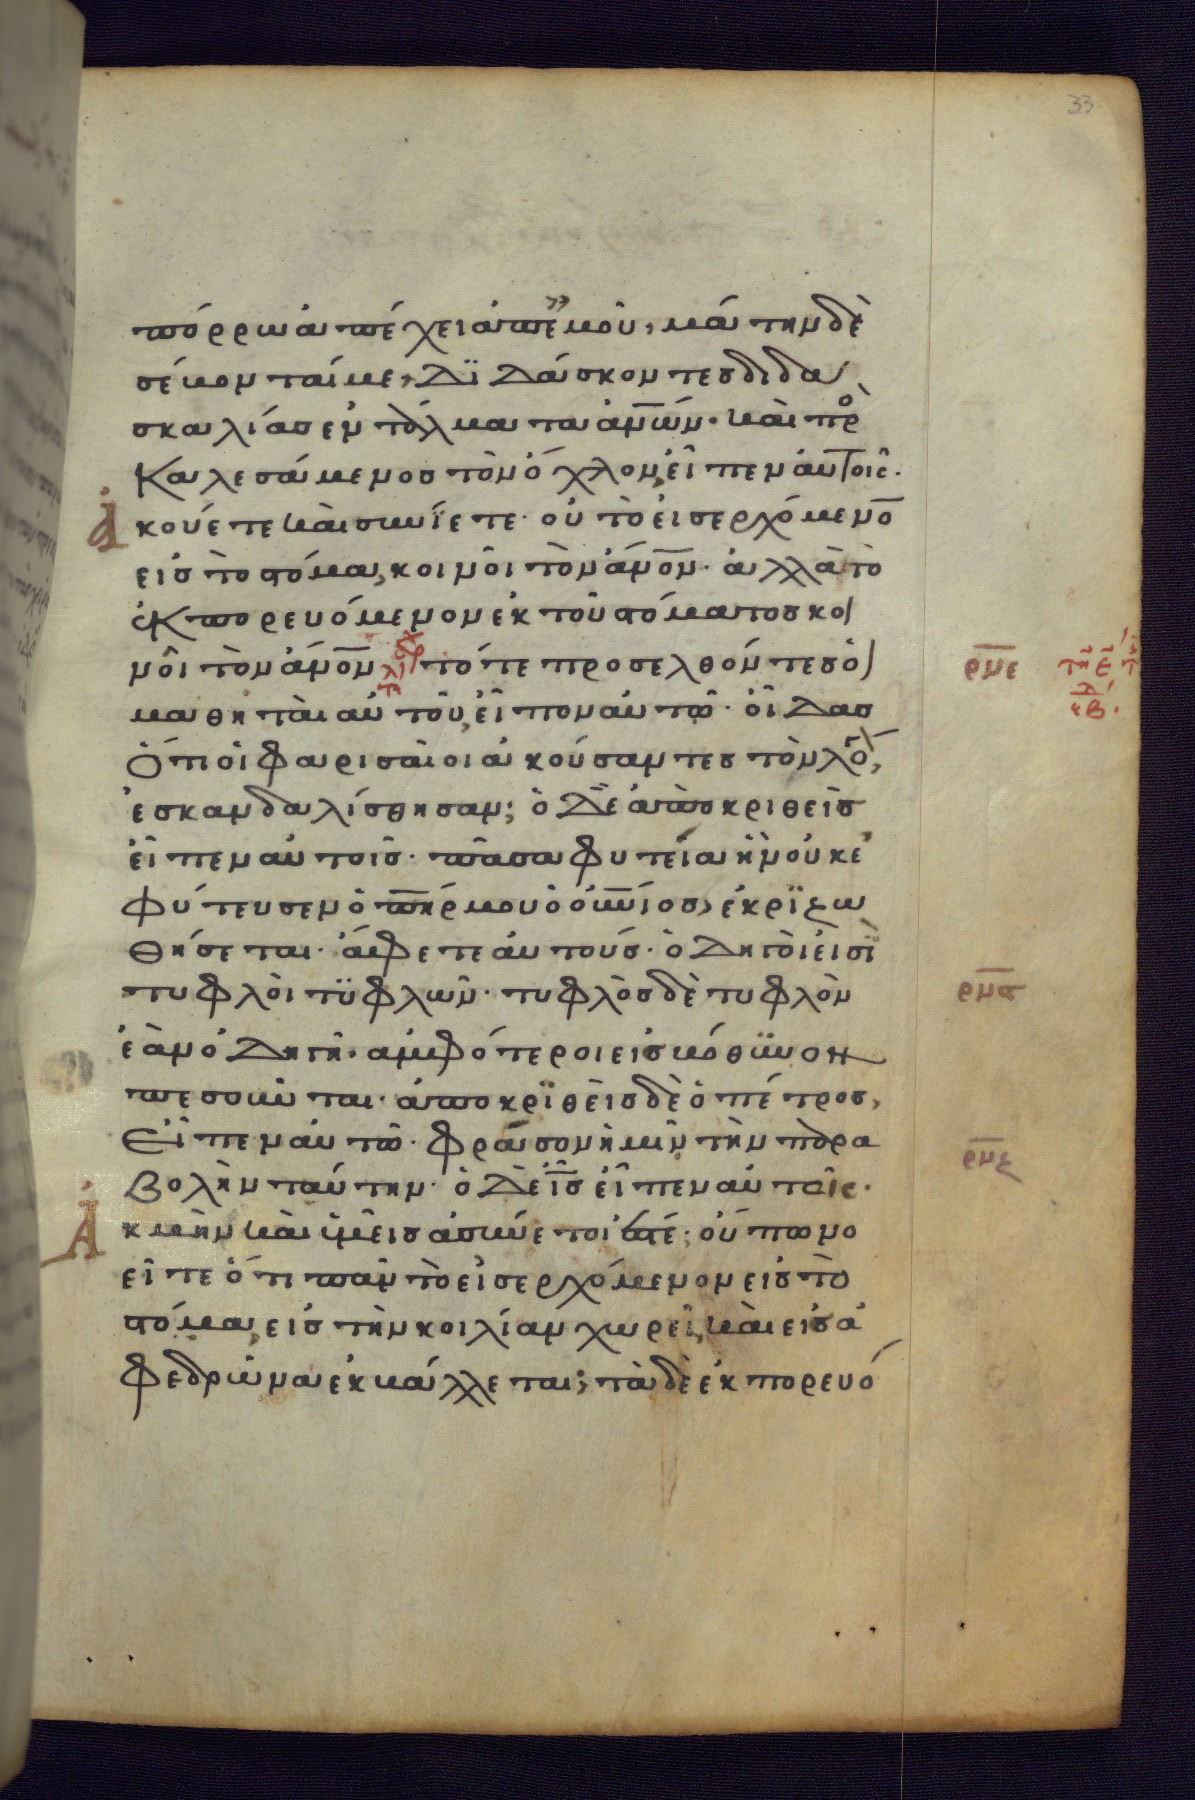 33
πόρρω ἀπέχει ἀπ' ἐμοῦ, μάτην δὲ
σέβονταί με, διδάσκοντες διδα
σκαλίας ἐντάλματα ἀν̅ων· καὶ προ
καλεσάμενος τὸν ὄχλον, εἶπεν αὐτοῖς·
Ἀκούετε καὶ συνίετε· οὐ τὸ εἰσερχόμενο̅
εἰς τὸ στόμα, κοινοῖ τὸν ἄν̅ον· ἀλλὰ τὸ
ἐκπορευόμενον ἐκ τοῦ στόματος κοι
νοῖ τὸν ἄν̅ον τότε προσελθόντες οἱ
ρ̅μ̅ε̅
μαθηταὶ αὐτοῦ, εἶπον αὐτῶ· οἶδας
ὅτι οἱ φαρισαῖοι ἀκούσαντες τὸν λό,
ἐσκανδαλίσθησαν; ὁ δὲ ἀποκριθεὶς
εἶπεν αὐτοῖς· πᾶσα φυτεία ἣν οὐκ ἐ
φύτευσεν ὁ π̅η̅ρ μου ὁ οὐ̅νιος, ἐκριζω
θήσεται· ἄφετε αὐτούς· ὁδηγοί εἰσι
τυφλοὶ τυφλῶν· τυφλὸς δὲ τυφλὸν
ἐὰν ὁδηγῆ· ἀμφότεροι εἰς βόθυνον
πεσοῦνται· ἀποκριθεὶς δὲ ὁ πέτρος,
εἶπεν αὐτῶ· φράσον ἡμῖν τὴν παρα
βολὴν ταύτην· ὁ δὲ ι̅ς̅ εἶπεν αὐτοῖς·
Ἀκμὴν καὶ ὑμεῖς ἀσύνετοί ἐστέ; οὔπω νο
εῖτε ὅτι πᾶν τὸ εἰσερχόμενον εἰς τὸ
στόμα, εἰς τὴν κοιλίαν χωρεῖ, καὶ εἰς ἀ
φεδρῶνα ἐκβάλλεται; τὰ δὲ ἐκπορευό